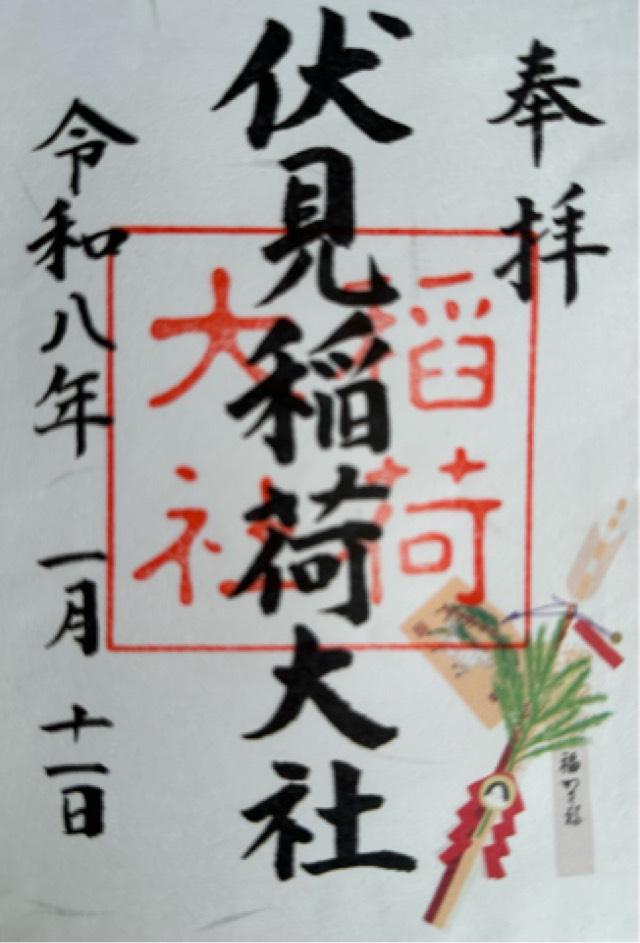 奉拝
伏見稲荷大社
稲荷
大社
令和八年 一月 十一日